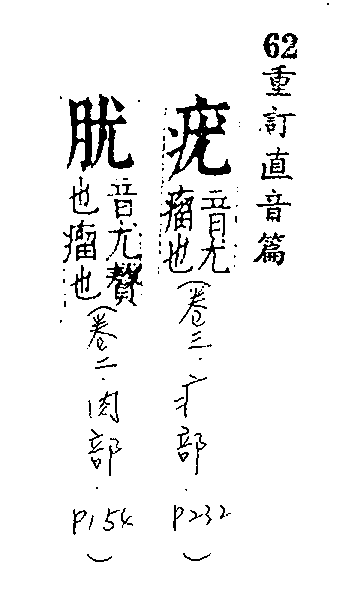 62重訂直音篇
疣音尤瘤也(卷三.疒部.P232)
肬音尤贅也瘤也(卷二.肉部.P154)